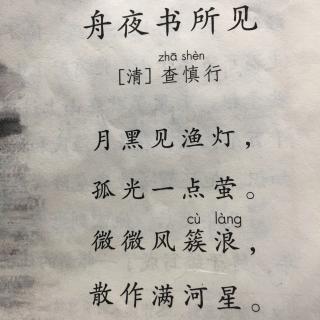 舟夜书所见
zhā shèn
[清] 查慎行
月黑见渔灯，
孤光一点萤。
cù làng
微微风簇浪，
散作满河星。